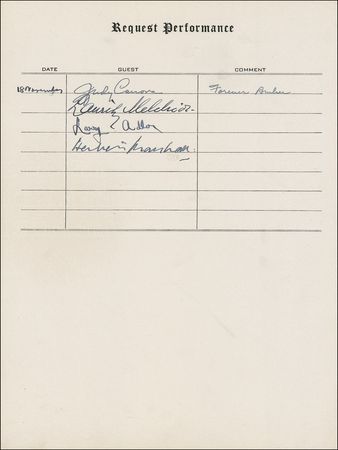 Request Performance
DATE GUEST COMMENT
18 November Judy Canova Forever Amber
Lauritz Melchior.
Larry Adler
Herbert Marshall.